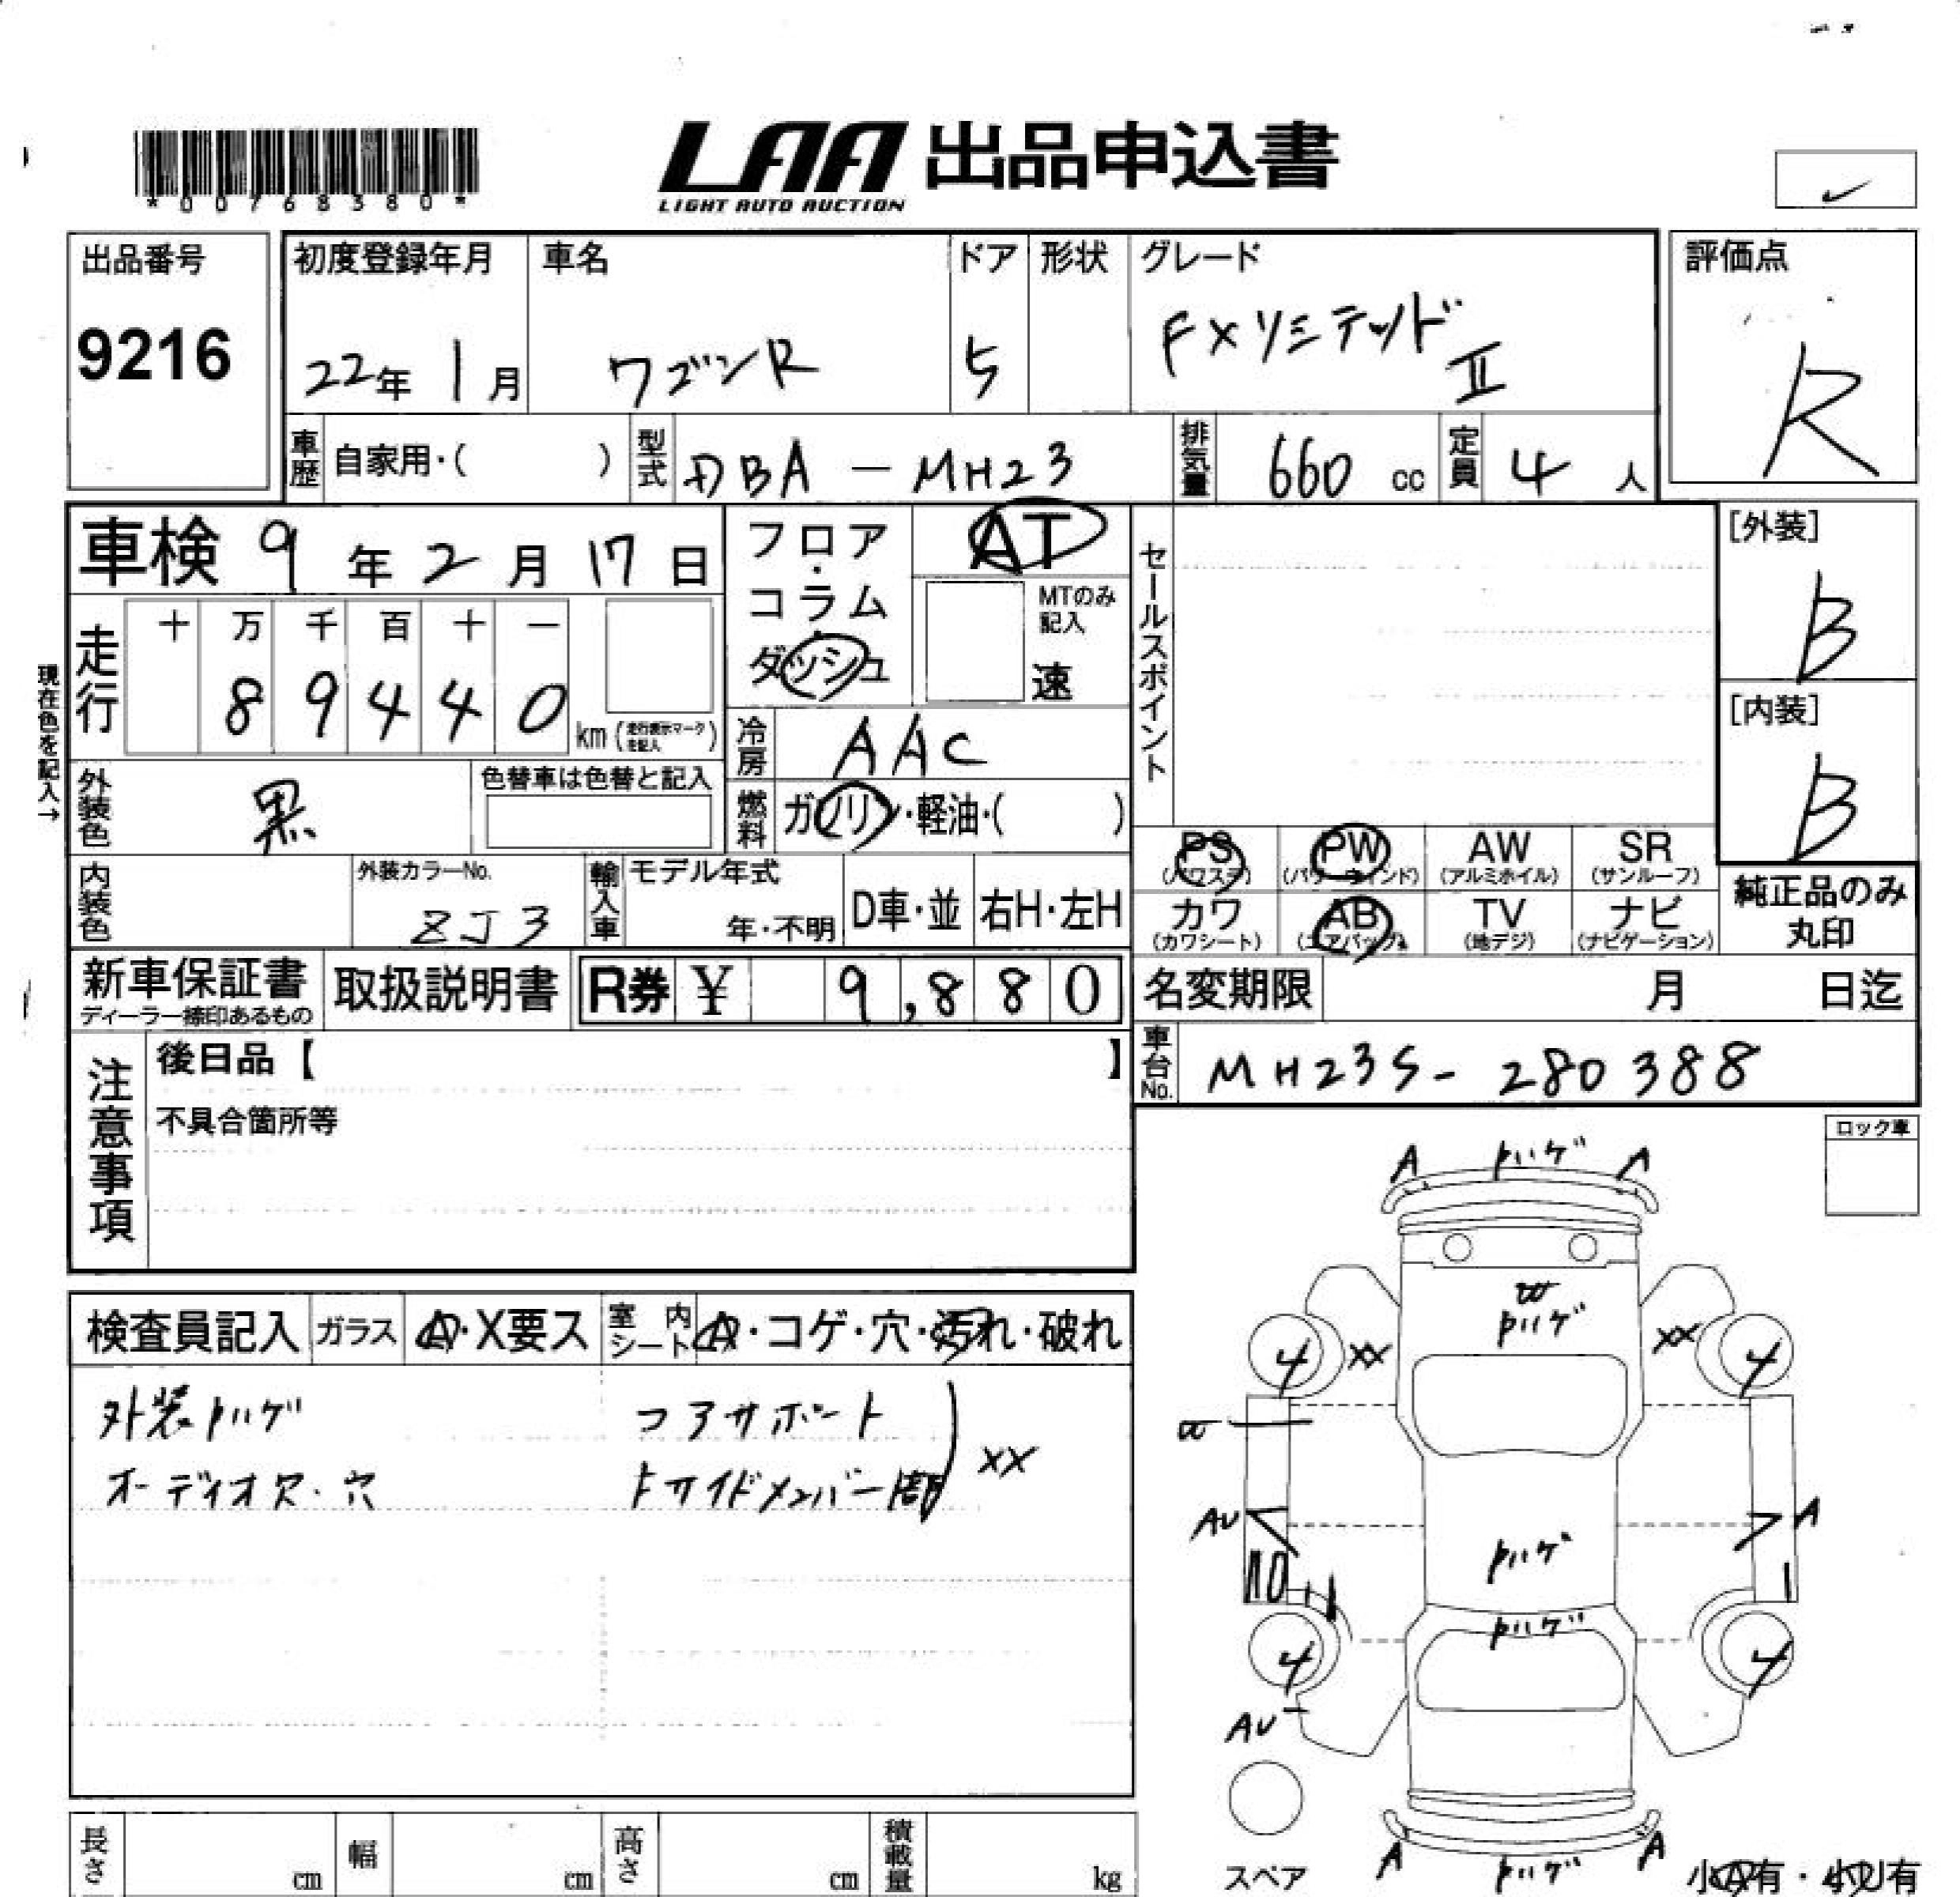 *00768380*
LAA 出品申込書
LIGHT AUTO AUCTION
出品番号
9216
初度登録年月 車名 ドア 形状 グレード
22年 1月 ワゴンR 5 FXリミテッドⅡ
評価点
R
車歴 自家用・( ) 型式 DBA - MH23 排気量 660 cc 定員 4 人
車検 9年 2月 17日
フロア・コラム・ダッシュ
AT
MTのみ記入
速
セールスポイント
[外装]
B
[内装]
B
走行 十 万 千 百 十 一
8 9 4 4 0
km (走行表示マークを記入)
現在色を記入→
冷房 AAC
外装色 黒
色替車は色替と記入
燃料 ガソリン・軽油・( )
PS PW AW SR
(パワステ) (パワーウインド) (アルミホイル) (サンルーフ)
カワ AB TV ナビ
(カワシート) (エアバッグ) (地デジ) (ナビゲーション)
純正品のみ
丸印
内装色
外装カラーNo.
ZJ3
輸入車 モデル年式
年・不明 D車・並 右H・左H
新車保証書
ディーラー捺印あるもの
取扱説明書
R券 ¥ 9,880
名変期限 月 日迄
車台No. MH23S- 280388
注意事項
後日品【 】
不具合箇所等
ロック車
検査員記入 ガラス A・X要ス 室内シート A・コゲ・穴・汚れ・破れ
外装トハゲ コアサポート
オーディオ欠・穴 トサイドメンバー間 XX
A トハゲ A
W
トハゲ
XX XX
4 4
W
AU A
トハゲ
トハゲ
4 4
AU
A トハゲ A
スペア
小A有・小U有
長さ cm 幅 cm 高さ cm 積載量 kg